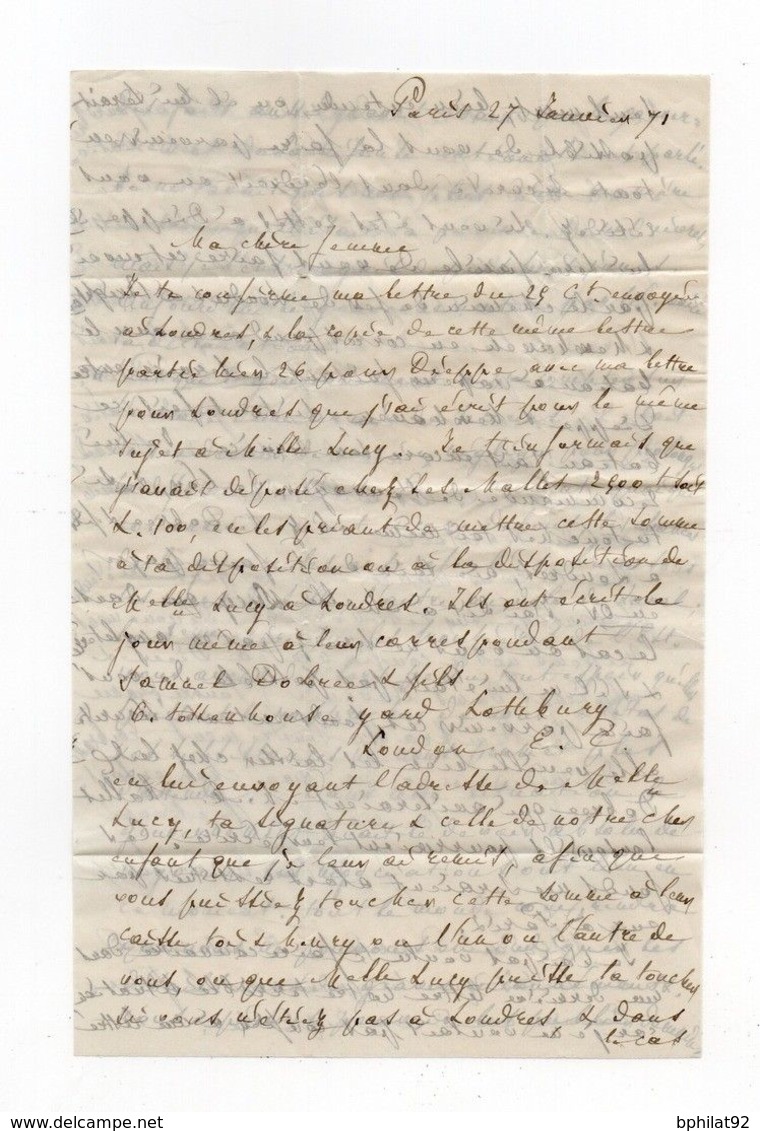 Paris 27 Janvier 71
Ma chère femme
Je te confirme ma lettre du 25 Ct. envoyée
à Londres, & la copie de cette même lettre
partie hier 26 pour Dieppe avec ma lettre
pour Londres que j'ai écrit pour le même
sujet à Melle Lucy. Je t'informais que
j'avais déposé chez les Mallet 2500 f soit
L. 100, en les priant de mettre cette somme
à ta disposition ou à la disposition de
Melle Lucy à Londres. Ils ont écrit le
jour même à leur correspondant
Samuel Dobree & fils
6. Tokenhouse yard Lothbury
London E. C.
en lui envoyant l'adresse de Melle
Lucy, ta signature & celle de notre cher
enfant que je leur ai remis, afin que
vous puissiez toucher cette somme à leur
caisse toi & henry ou l'un ou l'autre de
vous, ou que Melle Lucy puisse la toucher
si vous n'étiez pas à Londres & dans
le cas
delcampe.net
bphilat92